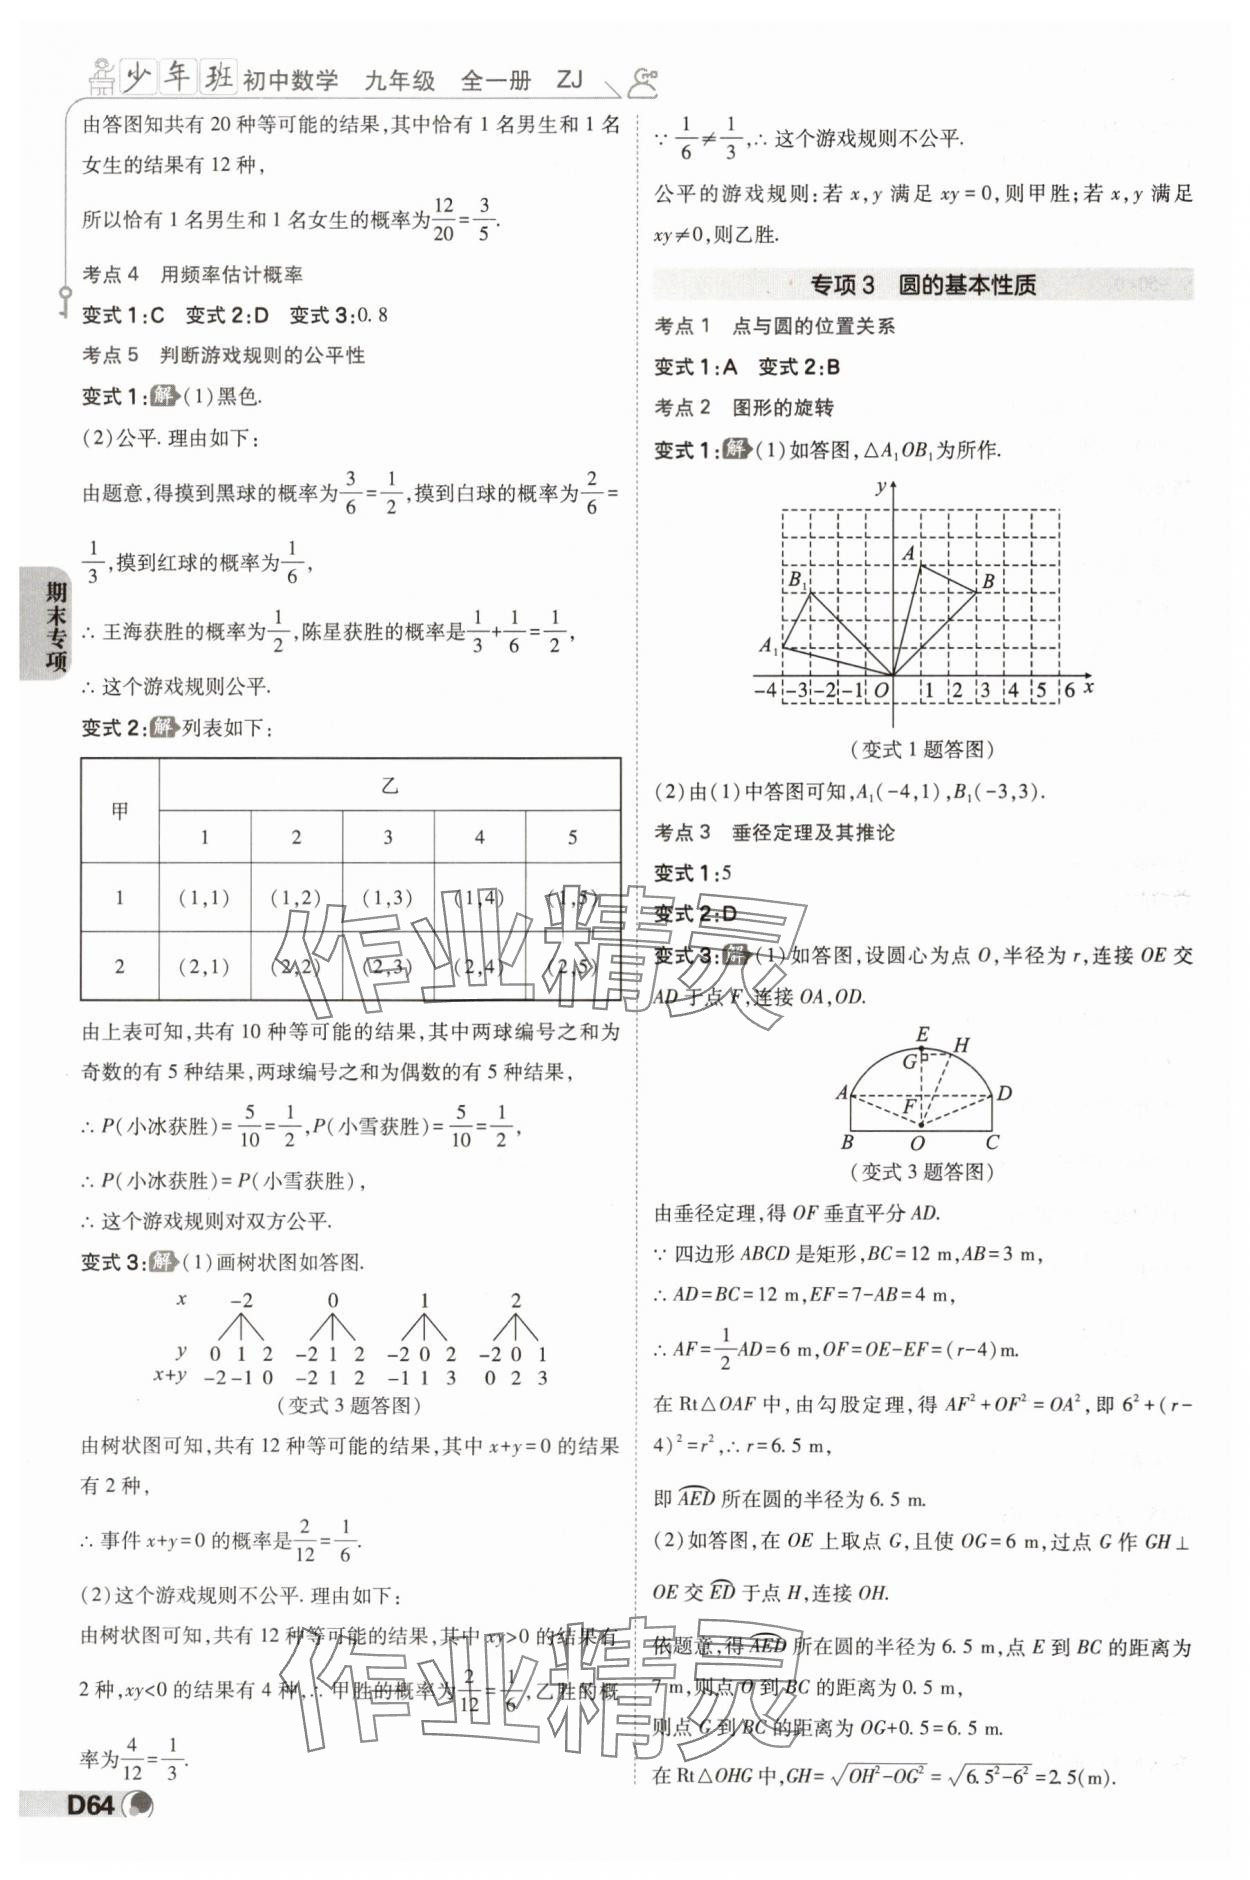 少年班 初中数学 九年级 全一册 ZJ
由答图知共有 20 种等可能的结果,其中恰有 1 名男生和 1 名
女生的结果有 12 种,
所以恰有 1 名男生和 1 名女生的概率为12/20=3/5.
考点 4 用频率估计概率
变式 1:C 变式 2:D 变式 3:0.8
考点 5 判断游戏规则的公平性
变式 1:解 (1)黑色.
(2)公平. 理由如下:
由题意,得摸到黑球的概率为3/6=1/2,摸到白球的概率为2/6=
1/3,摸到红球的概率为1/6,
∴ 王海获胜的概率为1/2,陈星获胜的概率是1/3+1/6=1/2,
∴ 这个游戏规则公平.
变式 2:解 列表如下:
甲 乙
1 2 3 4 5
1 (1,1) (1,2) (1,3) (1,4) (1,5)
2 (2,1) (2,2) (2,3) (2,4) (2,5)
由上表可知,共有 10 种等可能的结果,其中两球编号之和为
奇数的有 5 种结果,两球编号之和为偶数的有 5 种结果,
∴ P(小冰获胜)=5/10=1/2,P(小雪获胜)=5/10=1/2,
∴ P(小冰获胜)=P(小雪获胜),
∴ 这个游戏规则对双方公平.
变式 3:解 (1)画树状图如答图.
x -2 0 1 2
y 0 1 2 -2 1 2 -2 0 2 -2 0 1
x+y -2 -1 0 -2 1 2 -1 1 3 0 2 3
(变式 3 题答图)
由树状图可知,共有 12 种等可能的结果,其中 x+y=0 的结果
有 2 种,
∴ 事件 x+y=0 的概率是2/12=1/6.
(2)这个游戏规则不公平. 理由如下:
由树状图可知,共有 12 种等可能的结果,其中 xy>0 的结果有
2 种,xy<0 的结果有 4 种,∴ 甲胜的概率为2/12=1/6,乙胜的概
率为4/12=1/3.
D64
期末专项
∵ 1/6≠1/3,∴ 这个游戏规则不公平.
公平的游戏规则:若 x,y 满足 xy=0,则甲胜;若 x,y 满足
xy≠0,则乙胜.
专项 3 圆的基本性质
考点 1 点与圆的位置关系
变式 1:A 变式 2:B
考点 2 图形的旋转
变式 1:解 (1)如答图,△A₁OB₁为所作.
y
A
B₁ B
A₁
-4 -3 -2 -1 O 1 2 3 4 5 6 x
(变式 1 题答图)
(2)由(1)中答图可知,A₁(-4,1),B₁(-3,3).
考点 3 垂径定理及其推论
变式 1:5
变式 2:D
变式 3:解 (1)如答图,设圆心为点 O,半径为 r,连接 OE 交
AD 于点 F,连接 OA,OD.
E
G H
A F D
B O C
(变式 3 题答图)
由垂径定理,得 OF 垂直平分 AD.
∵ 四边形 ABCD 是矩形,BC=12 m,AB=3 m,
∴ AD=BC=12 m,EF=7-AB=4 m,
∴ AF=1/2AD=6 m,OF=OE-EF=(r-4)m.
在 Rt△OAF 中,由勾股定理,得 AF²+OF²=OA²,即 6²+(r-
4)²=r²,∴ r=6.5 m,
即 A͡ED 所在圆的半径为 6.5 m.
(2)如答图,在 OE 上取点 G,且使 OG=6 m,过点 G 作 GH⊥
OE 交 E͡D 于点 H,连接 OH.
依题意,得 A͡ED 所在圆的半径为 6.5 m,点 E 到 BC 的距离为
7 m,则点 O 到 BC 的距离为 0.5 m,
则点 G 到 BC 的距离为 OG+0.5=6.5 m.
在 Rt△OHG 中,GH=√(OH²-OG²)=√(6.5²-6²)=2.5(m).
作业精灵
作业精灵